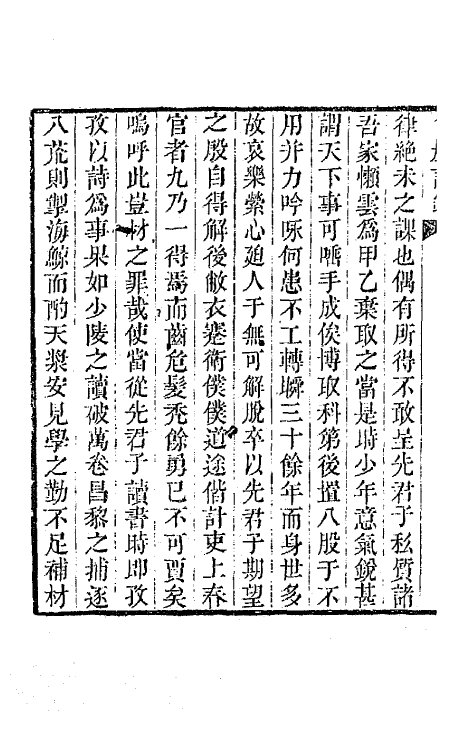 律絕未之課也偶有所得不敢呈先君子私質諸
吾家懶雲爲甲乙棄取之當是時少年意氣銳甚
謂天下事可唾手成俟博取科第後置八股于不
用并力吟咏何患不工轉瞬三十餘年而身世多
故哀樂縈心廹人于無可解脫卒以先君子期望
之殷自得解後敝衣蹇衛僕僕道途偕計吏上春
官者九乃一得焉而齒危髮禿餘勇已不可賈矣
嗚呼此豈材之罪哉使當從先君子讀書時即孜
孜以詩爲事果如少陵之讀破萬卷昌黎之捕逐
八荒則掣海鯨而酌天漿安見學之勤不足補材